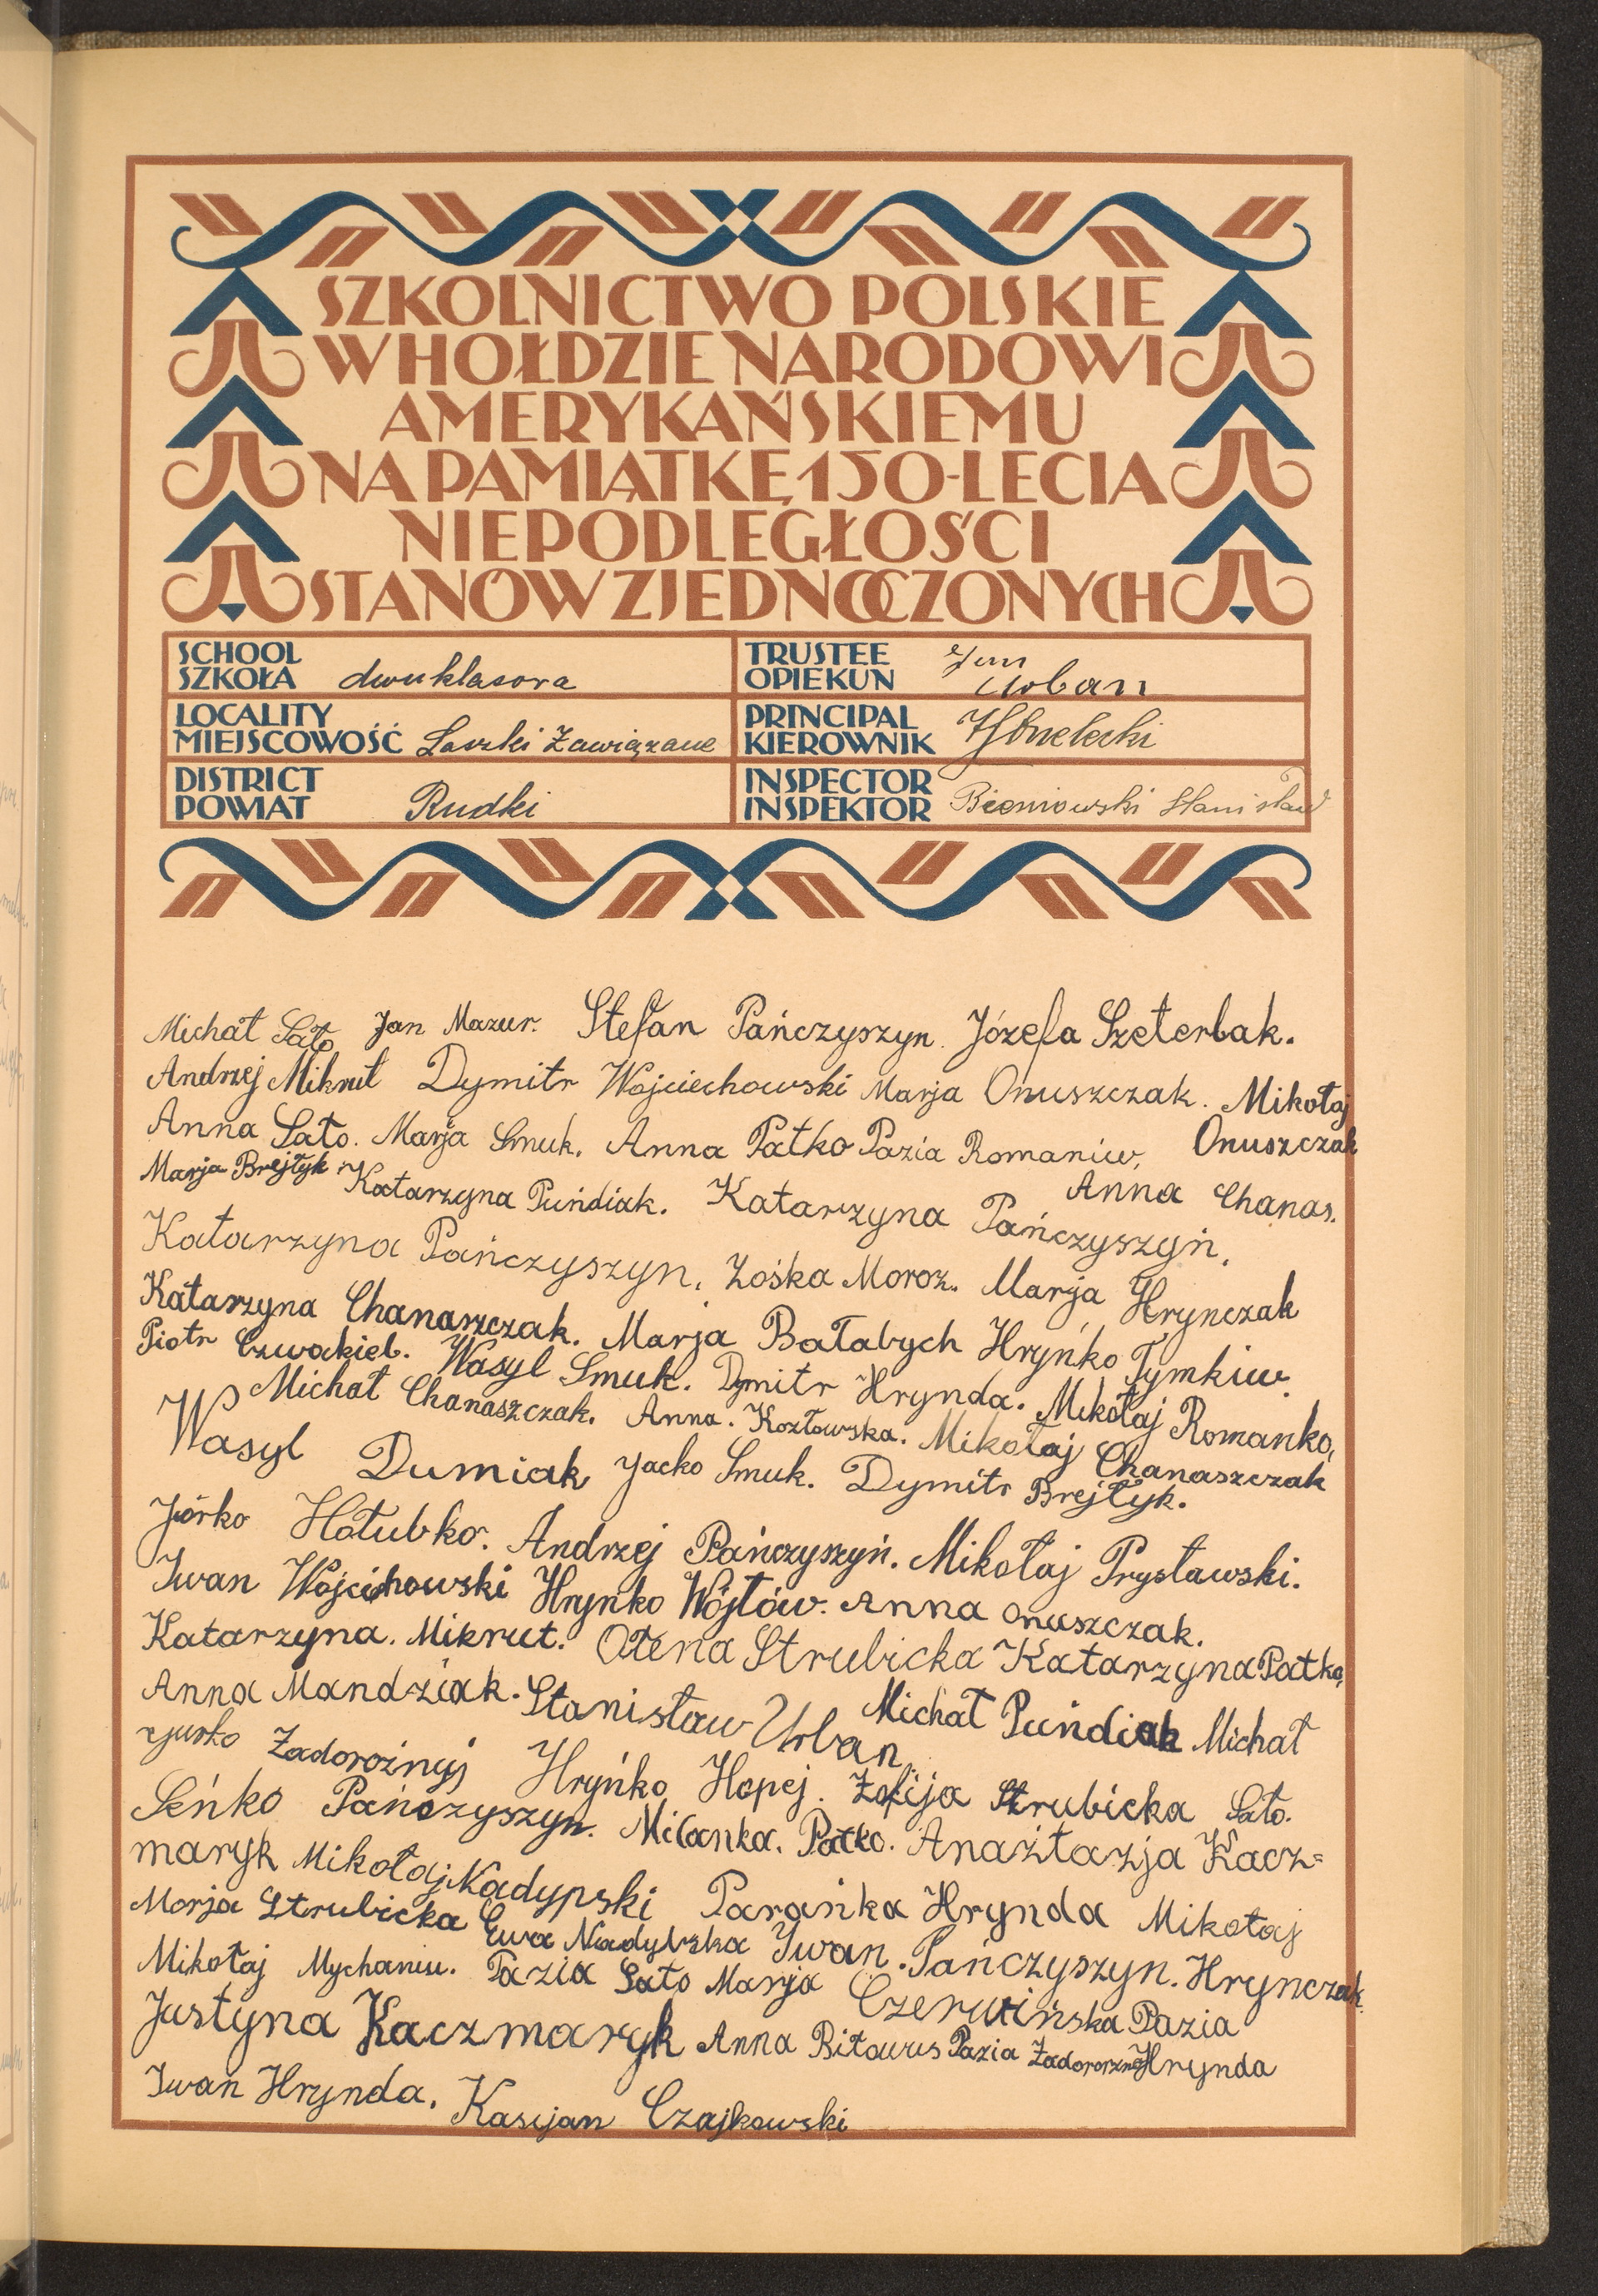 SZKOLNICTWO POLSKIE
W HOŁDZIE NARODOWI
AMERYKAŃSKIEMU
NA PAMIĄTKĘ 150-LECIA
NIEPODLEGŁOŚCI
STANÓW ZJEDNOCZONYCH
SCHOOL
SZKOŁA dwuklasowa
TRUSTEE
OPIEKUN Jan Urban
LOCALITY
MIEJSCOWOŚĆ Laszki Zawiązane
PRINCIPAL
KIEROWNIK
DISTRICT
POWIAT Rudki
INSPECTOR
INSPEKTOR Stanisław
Michał Sato Jan Mazur. Stefan Pańczyszyn. Józefa Szeterlak.
Andrzej Mikrut Dymitr Wojciechowski Marja Onuszczak. Mikołaj
Anna Sato. Marja Smuk. Anna Patko Pazia Romaniw. Onuszczak
Marja Brejtyk. Katarzyna Puńdiak. Katarzyna Pańczyszyń. Anna Chanas.
Katarzyna Pańczyszyn. Zośka Moroz. Marja Hrynczak
Katarzyna Chanaszczak. Marja Bałabych Hryńko Tymkiw.
Piotr Czwakiel. Wasyl Smuk. Dymitr Hrynda. Mikołaj Romanko,
Michał Chanaszczak. Anna. Kozłowska. Mikołaj Chanaszczak
Wasyl Dumiak Jacko Smuk. Dymitr Brejtyk.
Jórko Hołubko. Andrzej Pańczyszyń. Mikołaj Prystawski.
Iwan Wojcichowski Hryńko Wójtów. Anna Onuszczak.
Katarzyna. Mikrut. Ołena Strubicka Katarzyna Patko,
Anna Mandziak. Stanisław Urban Michał Puńdiak Michał
Jurko Zadorożnyj Hryńko Hopej. Zofija Strubicka Sato.
Seńko Pańczyszyn. Milanka. Patko. Anażtazja Kacz=
maryk Mikołaj Nadypski Parańka Hrynda Mikołaj
Marja Strubicka Ewa Nadybska Iwan. Pańczyszyn. Hrynczak.
Mikołaj Mychaniw. Pazia Sato Marja Czerwińska Pazia
Justyna Kaczmaryk Anna Bitawus Pazia Hrynda
Iwan Hrynda. Kasijan Czajkowski